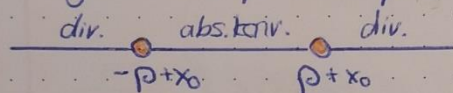 div. abs. konv. div.
-ρ+x₀ ρ+x₀